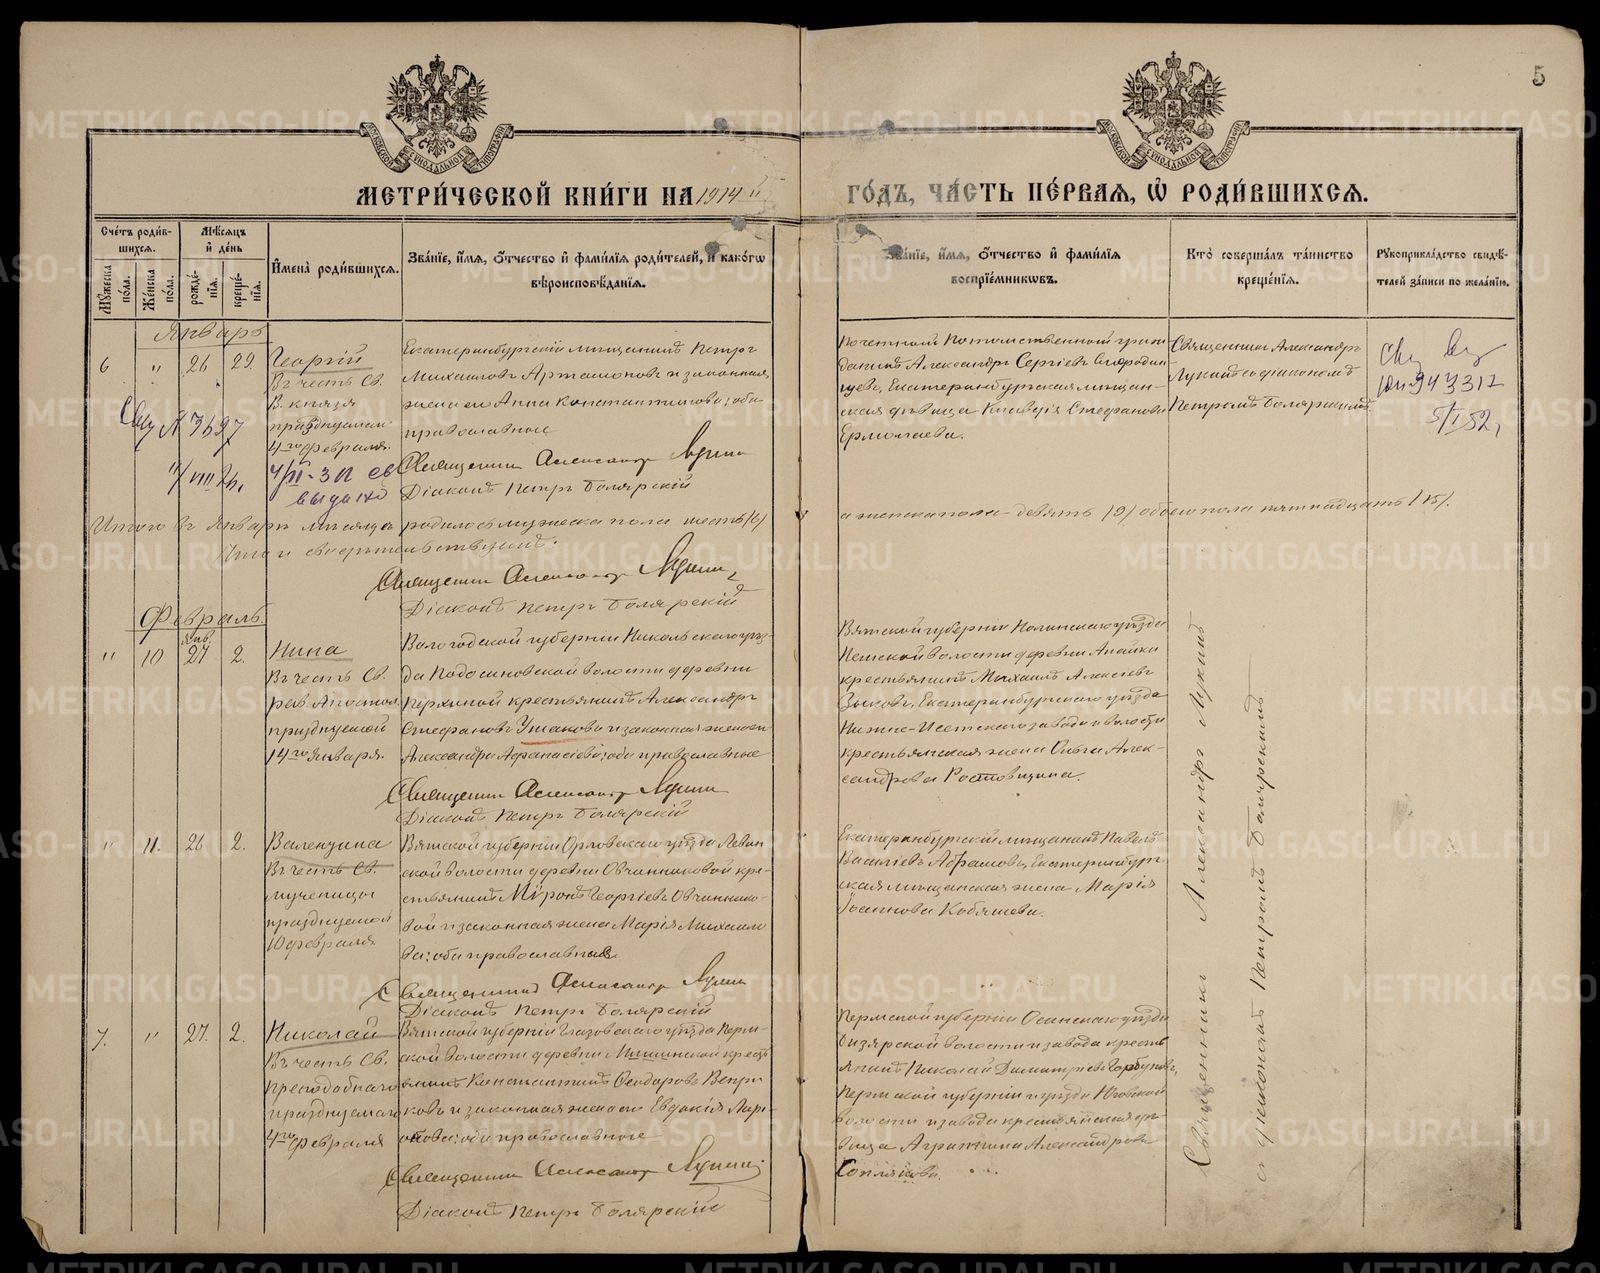 5
МЕТРИ́ЧЕСКОЙ КНИ́ГИ НА 1914 й
ГО́ДЪ, ЧА́СТЬ ПЕ́РВАЯ, Ѡ РОДИ́ВШИХСЯ.
Сче́тъ роди́в-
шихся.
Му́жеска по́ла.
Же́нска по́ла.
Мѣ́сяцъ
и де́нь
рожде́-
нїя.
креще́-
нїя.
И́мена роди́вшихся.
Зва́нїе, и́мя, ѻ́тчество и фами́лїя роди́телей, и како́гѡ
вѣроисповѣ́данїя.
Зва́нїе, и́мя, ѻ́тчество и фами́лїя
воспрїе́мниковъ.
Кто̀ соверша́лъ та́инство
креще́нїя.
Рукоприкла́дство свидѣ́-
телей за́писи по жела́нїю.
Январь
6 " 26 29. Георгій
Въ честь Св.
В. князя
празднуемаго
4го февраля.
Екатеринбургскій мѣщанинъ Петръ
Михаиловъ Артамоновъ и законная
жена его Анна Константинова; оба
православные
Священникъ Александръ Лукинъ
Діаконъ Петръ Боляр­скій
Почетный Потомственный граж
данинъ Александръ Сергіевъ
Екатеринбургская мѣщан-
ская дѣвица Клавдія Стефанова
Ермолаева.
Священникъ Александръ
Лукинъ съ діакономъ
Петромъ Болярскимъ
943312
5/I 52,
Итого въ Январѣ мѣсяцѣ родилось мужеска пола шесть /6/
а женска пола девять /9/ обоего пола пятнадцать /15/.
Что и свидѣтельствуемъ:
Священникъ Александръ Лукинъ
Діаконъ Петръ Болярскій
Февраль.
" 10 янв. 27 2. Нина
Въ честь Св.
рав. Апостол.
празднуемой
14го Января.
Вологодской губерніи Никольскаго уѣз-
да Подосиновской волости деревни
крестьянинъ Александръ
Стефановъ Ушаковъ и законная жена его
Александра Афанасіева; оба православные
Священникъ Александръ Лукинъ
Діаконъ Петръ Болярскій
Вятской губерніи Нолинскаго уѣзда
волости деревни
крестьянинъ Михаилъ Алексіевъ
Зыковъ, Екатеринбургскаго уѣзда
Нижне-Исетскаго завода и волости
крестьянская жена Ольга Алек-
сандрова Ростовщина.
" 11. 26 2. Валентина
Въ честь Св.
мученицы
празднуемой
10 февраля
Вятской губерніи Орловскаго уѣзда Левин
ской волости деревни Овчинниковой кре-
стьянинъ Миронъ Георгіевъ Овчиннико-
вой и законная жена Марія Михаило
ва; оба православные.
Священникъ Александръ Лукинъ
Діаконъ Петръ Болярскій
Екатеринбургскій мѣщанинъ Павелъ
Василіевъ Абрамовъ, Екатеринбург-
ская мѣщанская жена Марія
Іоаннова Кобяшева.
7. " 27. 2. Николай
Въ честь Св.
преподобнаго
празднуемаго
4го февраля
Вятской губерніи Глазовскаго уѣзда
ской волости деревни Мишинской кресть
янинъ Константинъ Ѳеодоровъ
и законная жена его Евдокія
оба православные
Священникъ Александръ Лукинъ
Діаконъ Петръ Болярскій
Пермской губерніи Осинскаго уѣзда
Бизярской волости и завода кресть
янинъ Николай Димитріевъ Горбуновъ,
Пермской губерніи и уѣзда Юговской
волости и завода крестьянская дѣ-
вица Агриппина Александрова
Священникъ Александръ Лукинъ
съ діакономъ Петромъ Болярскимъ
METRIKI.GASO-URAL.RU